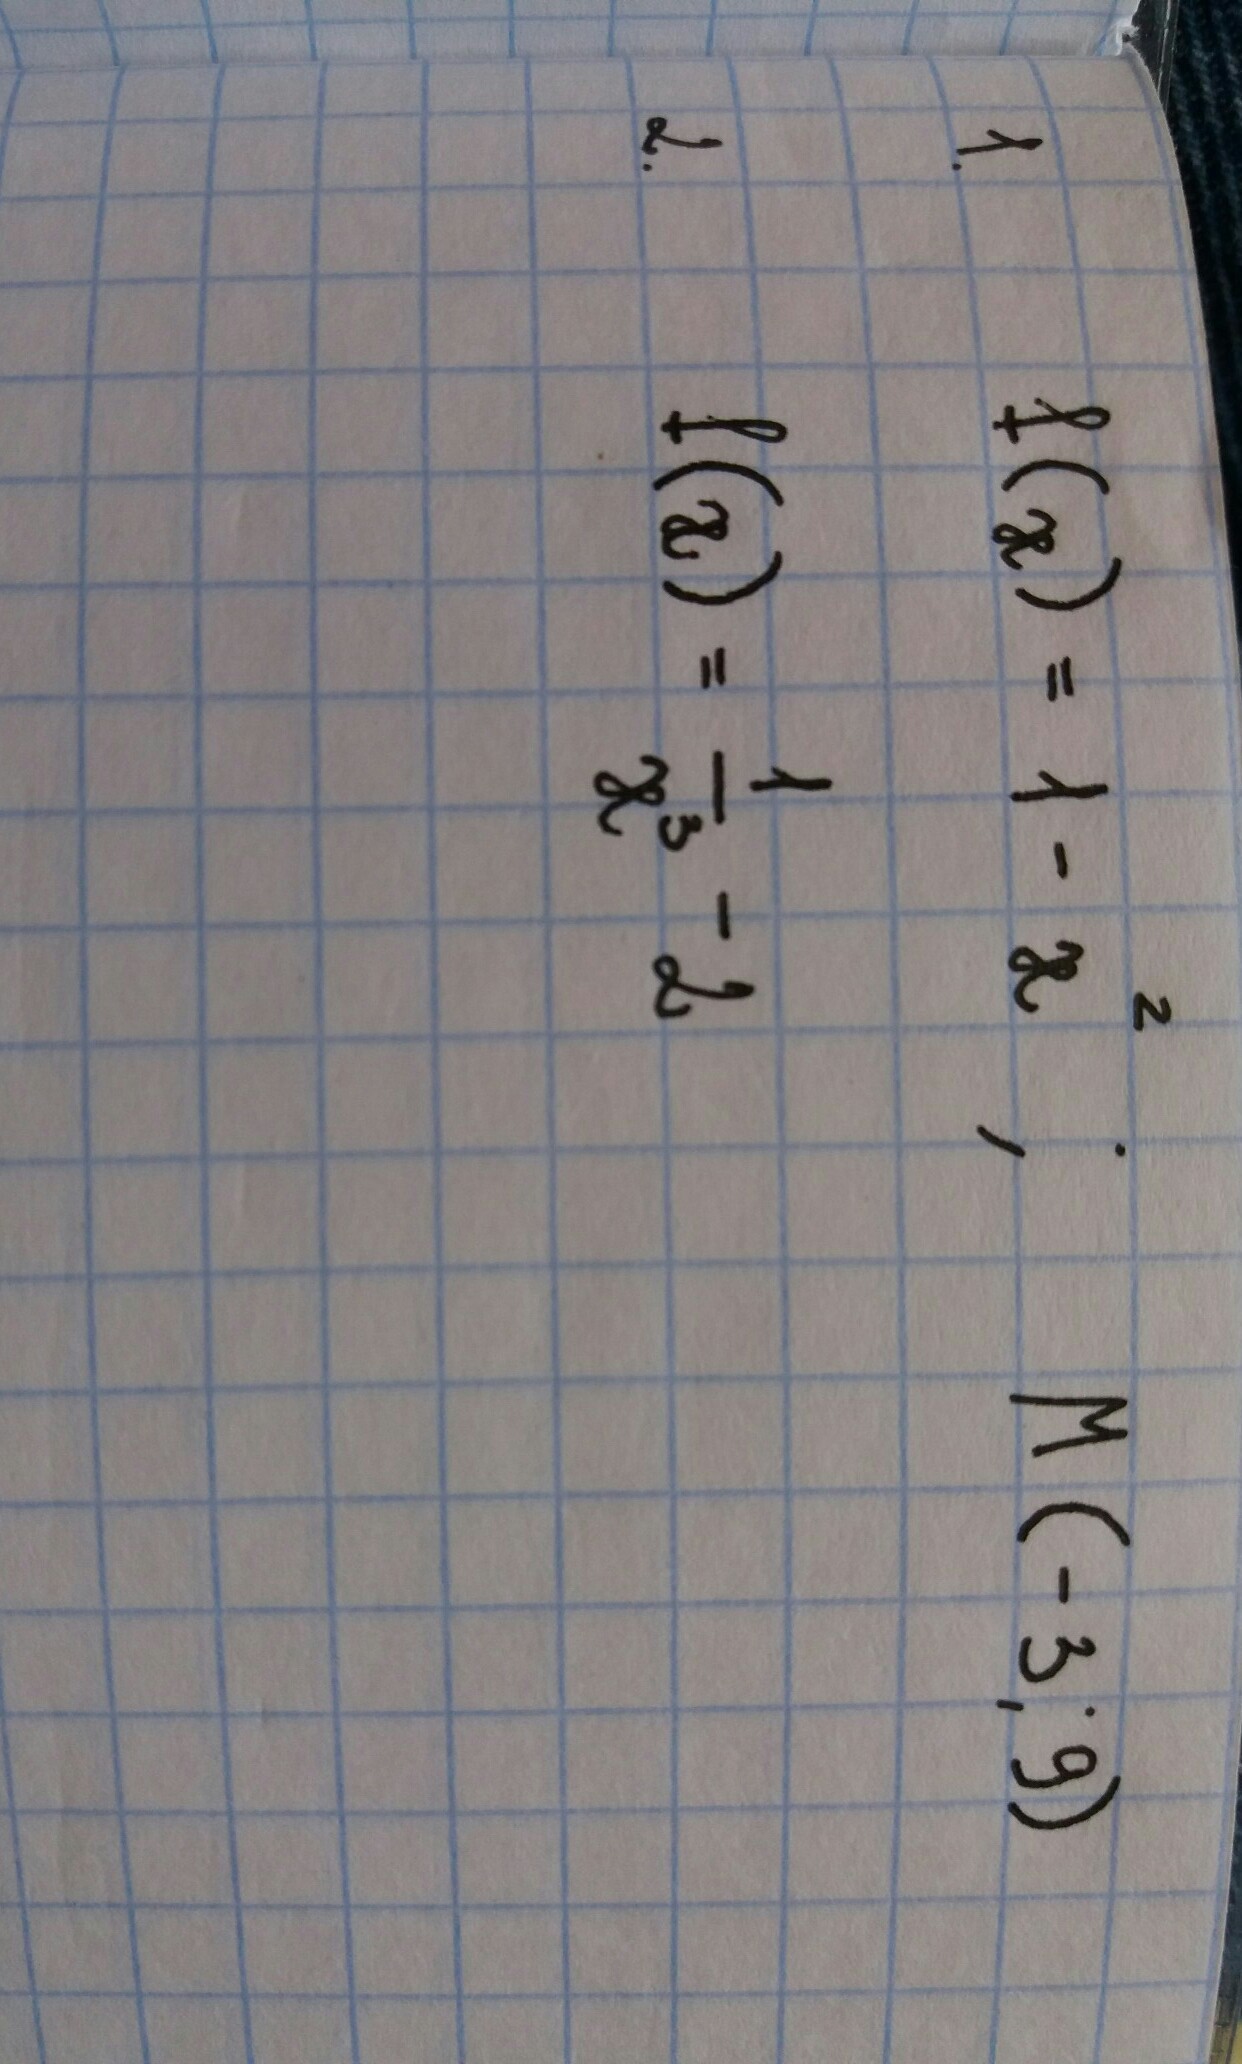 1. f(x) = 1 - x² ; M (-3; 9)
2. f(x) = 1/x³ - 2